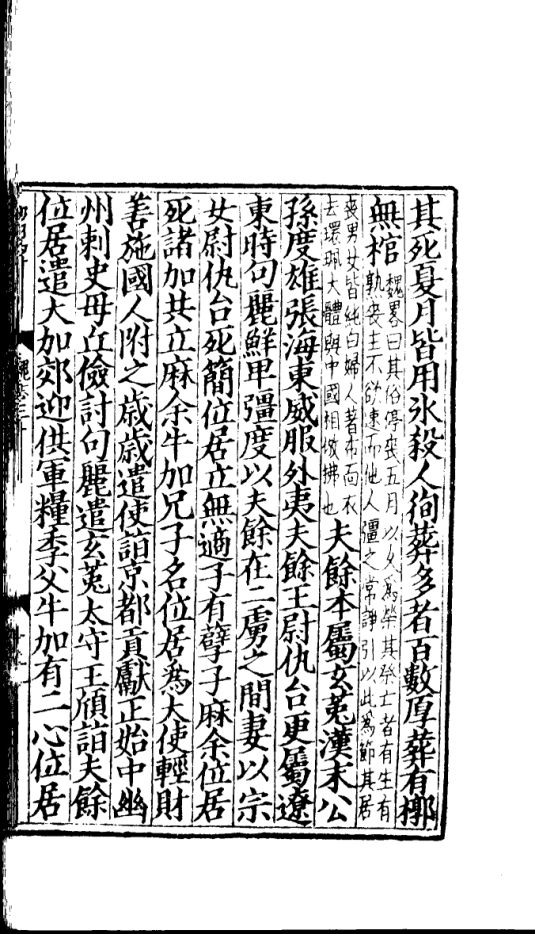 其死夏月皆用氷殺人徇葬多者百數厚葬有槨
無棺
魏畧曰其俗停喪五月以久爲榮其祭亡者有生有
熟喪主不欲速而他人彊之常諍引以此爲節其居
喪男女皆純白婦人著布面衣
去環珮大體與中國相倣拂也
夫餘本屬玄菟漢末公
孫度雄張海東威服外夷夫餘王尉仇台更屬遼
東時句麗鮮卑彊度以夫餘在二虜之間妻以宗
女尉仇台死簡位居立無適子有孽子麻余位居
死諸加共立麻余牛加兄子名位居爲大使輕財
善施國人附之歲歲遣使詣京都貢獻正始中幽
州刺史毋丘儉討句麗遣玄菟太守王頎詣夫餘
位居遣大加郊迎供軍糧季父牛加有二心位居